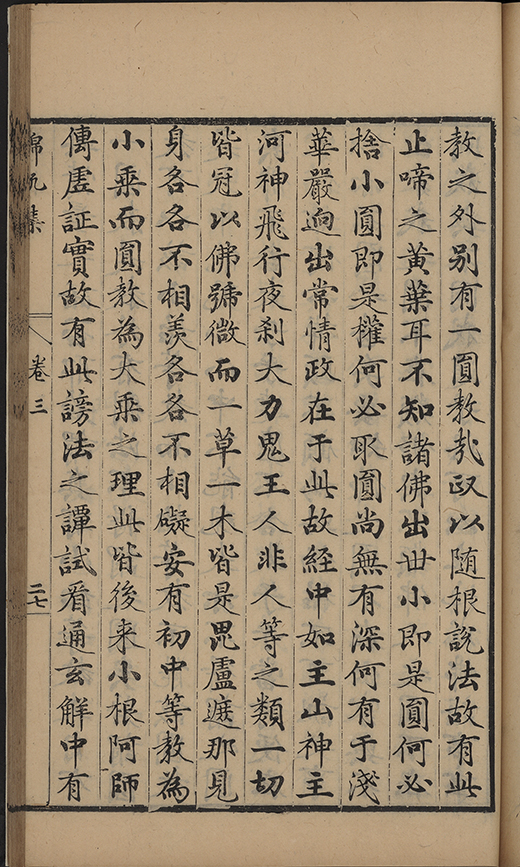 教之外別有一圓教㢤政以随根說法故有此
止啼之黄葉耳不知諸佛出世小即是圓何必
捨小圓即是權何必取圓尚無有深何有于淺
華嚴逈出常情政在于此故經中如主山神主
河神飛行夜刹大力鬼王人非人等之類一切
皆冠以佛號微而一草一木皆是毘盧遮那見
身各各不相羡各各不相礙安有初中等教為
小乘而圓教為大乘之理此皆後来小根阿師
傳虛証實故有此謗法之譚試看通玄解中有
錦帆集
卷三
二七